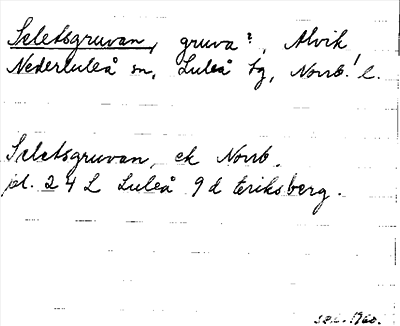 Seletsgruvan, gruva?, Alvik,
Nederluleå sn, Luleå tg, Norrb. l.
Seletsgruvan, ek Norrb.
pl. 24 L Luleå 9 d Eriksberg.
1960.